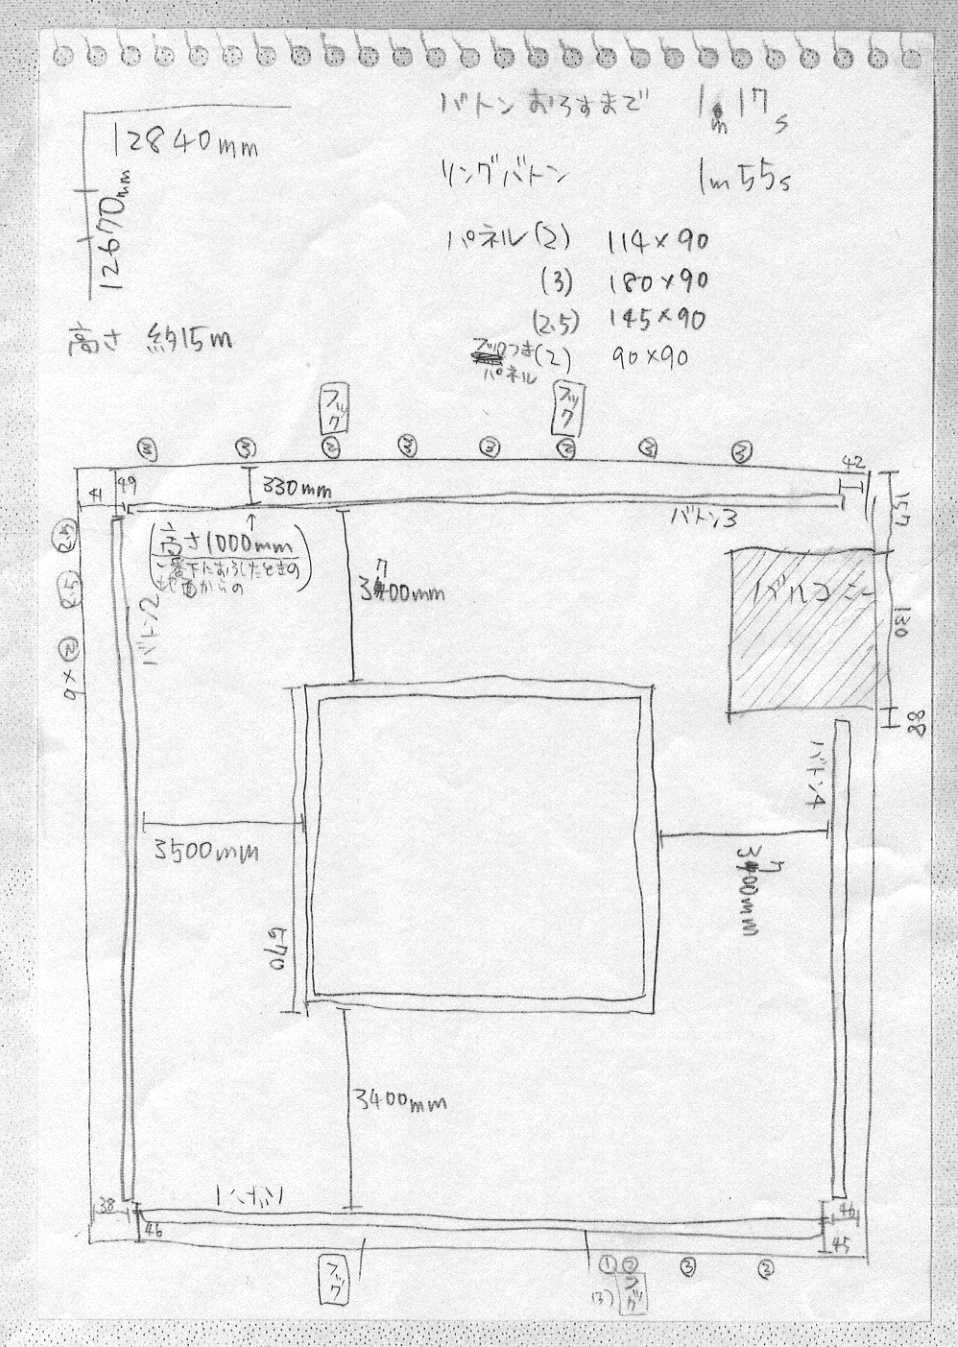 12840mm
12670mm
高さ 約15m
バトンおろすまで 1m17s
リングバトン 1m55s
パネル(2) 114×90
(3) 180×90
(2.5) 145×90
フックつき(2) 90×90
パネル
フック
フック
③ ③ ② ③ ② ② ③ ③
41
49
330mm
42
バトン3
157
(高さ1000mm
一番下におろしたときの
地面からの)
3700mm
2.5
2.5
②×9
バトン2
バルコニー
130
88
バトン4
3500mm
3700mm
570
3400mm
バトン1
38
46
46
45
フック
① ② ③ ②
(3)
フック